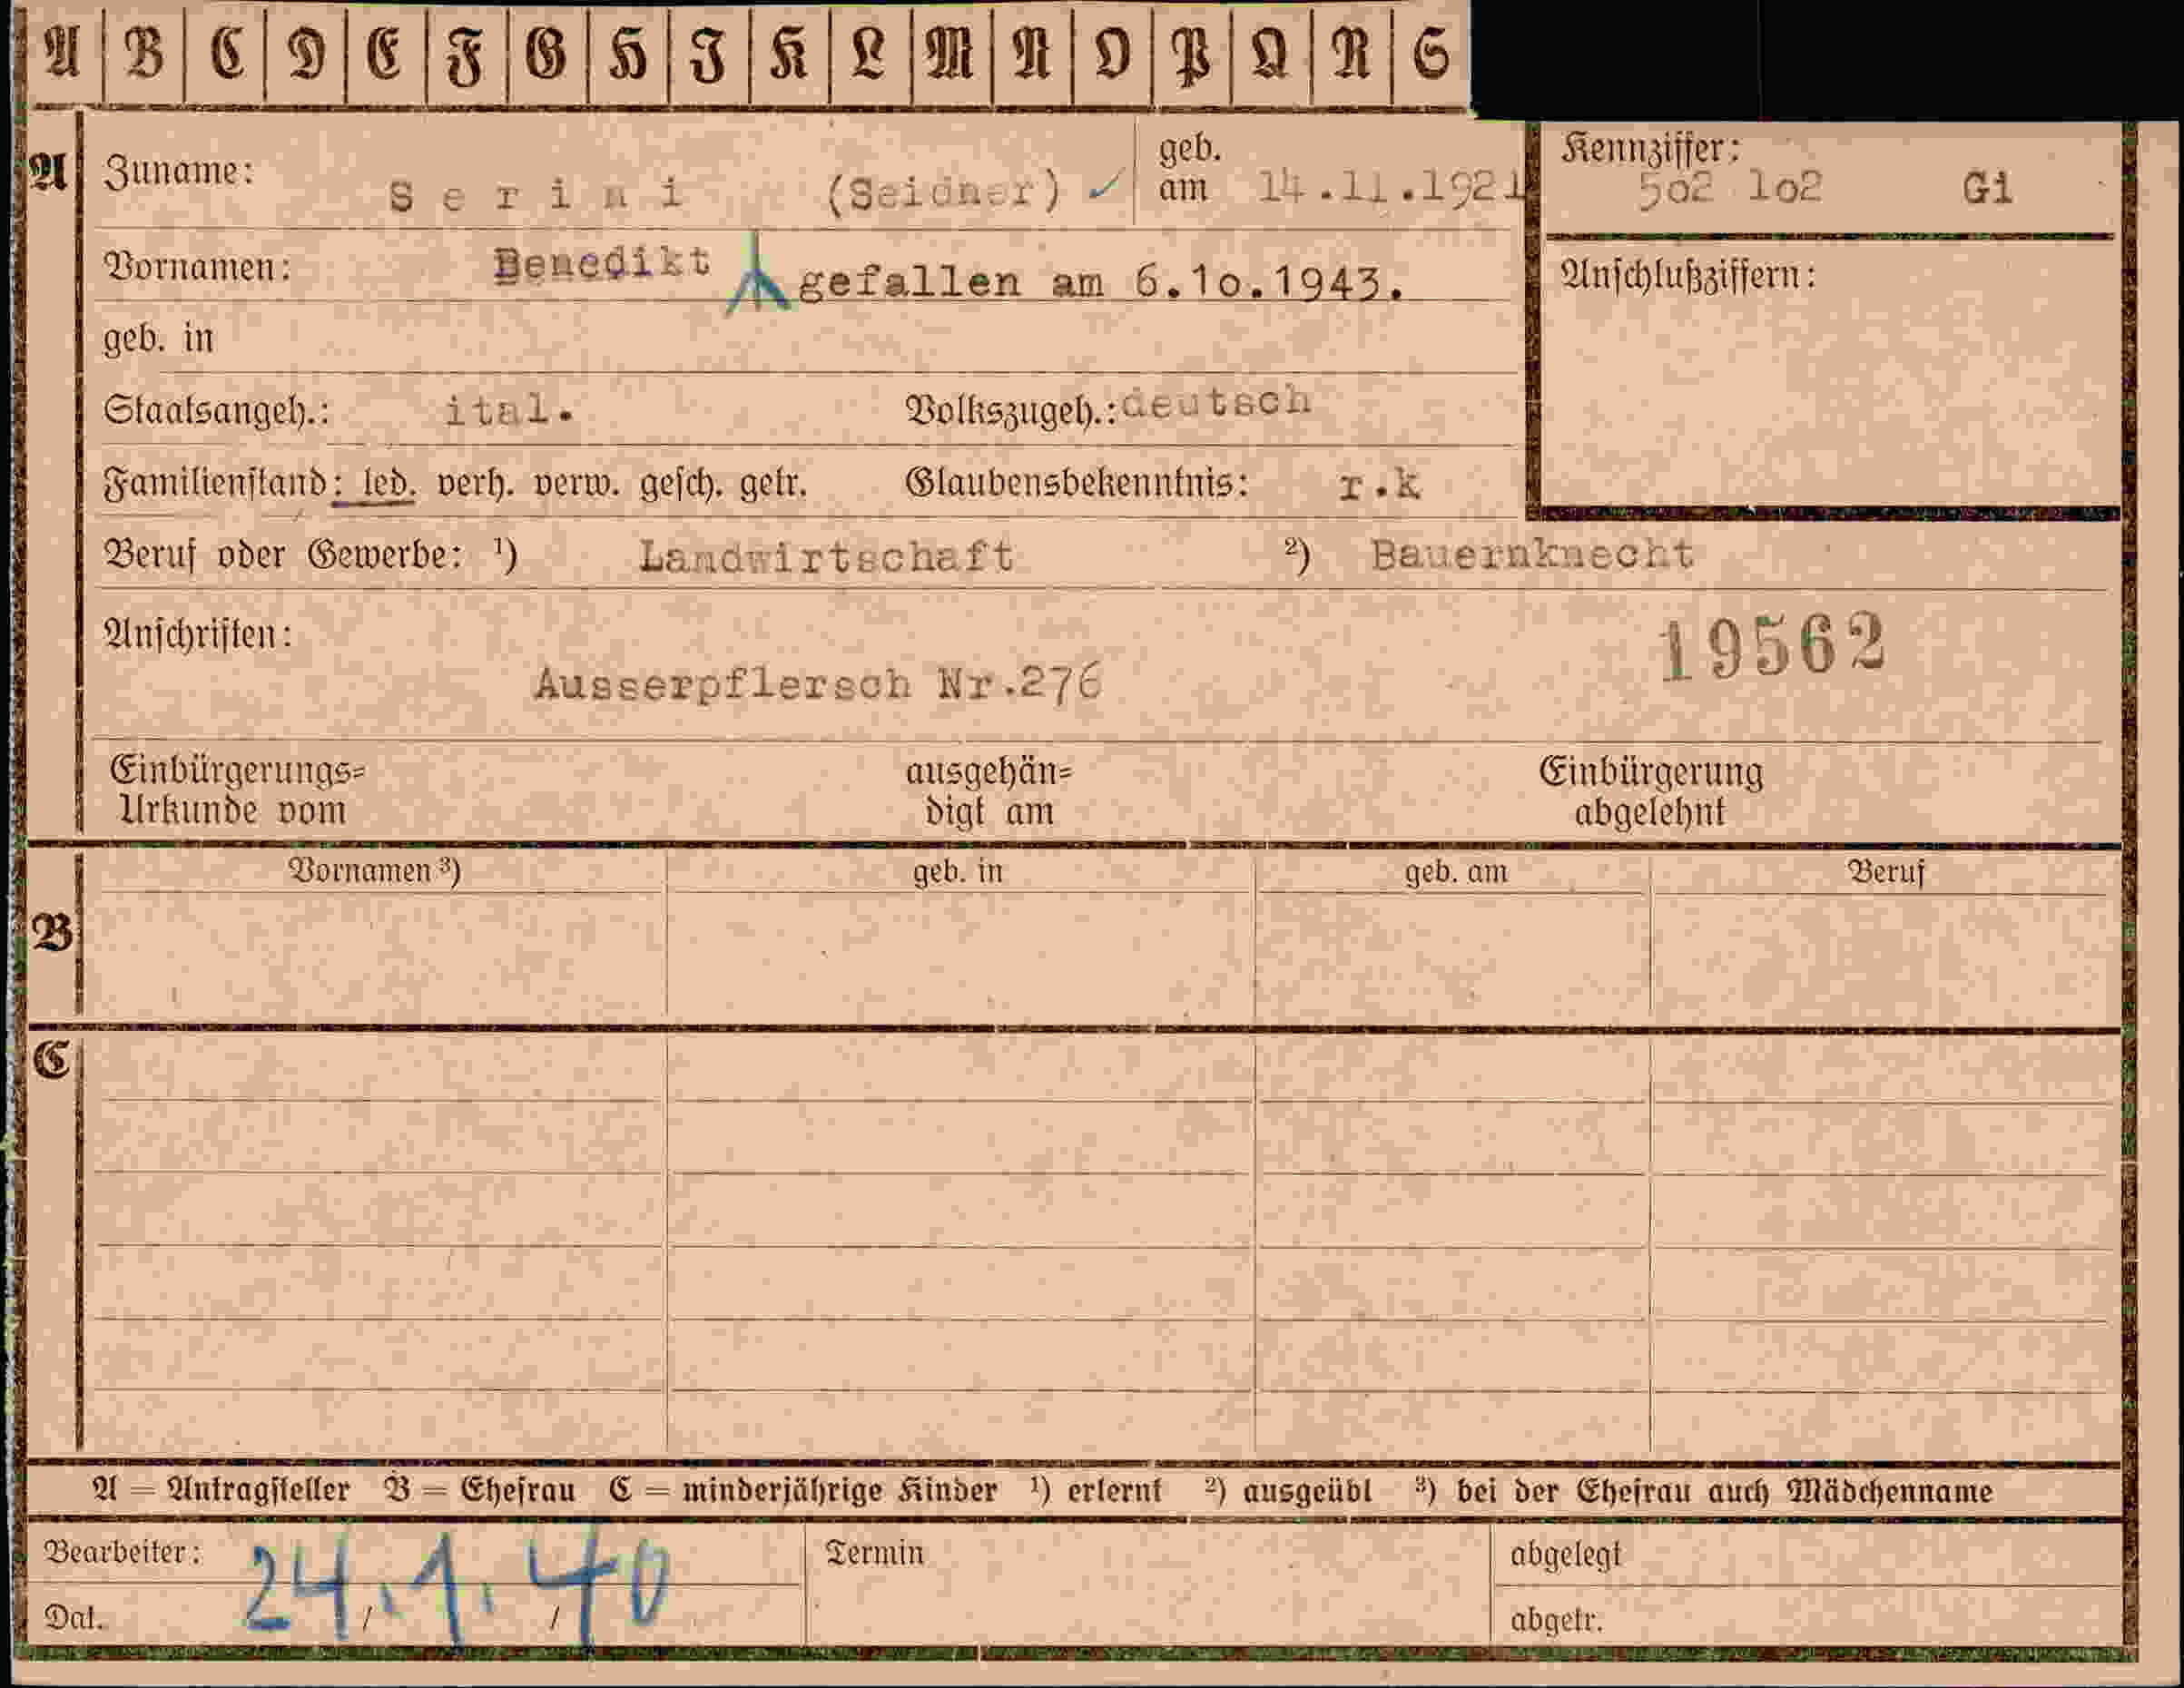 A B C D E F G H I K L M N O P Q R S
A Zuname: Serini (Seidner) ✓ geb. am 14.11.1921
Kennziffer: 502 1o2 Gi
Vornamen: Benedikt gefallen am 6.1o.1943.
Anschlußziffern:
geb. in
Staatsangeh.: ital. Volkszugeh.: deutsch
Familienstand: led. verh. verw. gesch. getr. Glaubensbekenntnis: r.k
Beruf oder Gewerbe: ¹) Landwirtschaft ²) Bauernknecht
Anschriften: 19562
Ausserpflersch Nr.276
Einbürgerungs= ausgehän= Einbürgerung
Urkunde vom digt am abgelehnt
Vornamen ³) geb. in geb. am Beruf
B
C
A = Antragsteller B = Ehefrau C = minderjährige Kinder ¹) erlernt ²) ausgeübt ³) bei der Ehefrau auch Mädchenname
Bearbeiter: Termin abgelegt
24.1.40
Dat. / / abgetr.